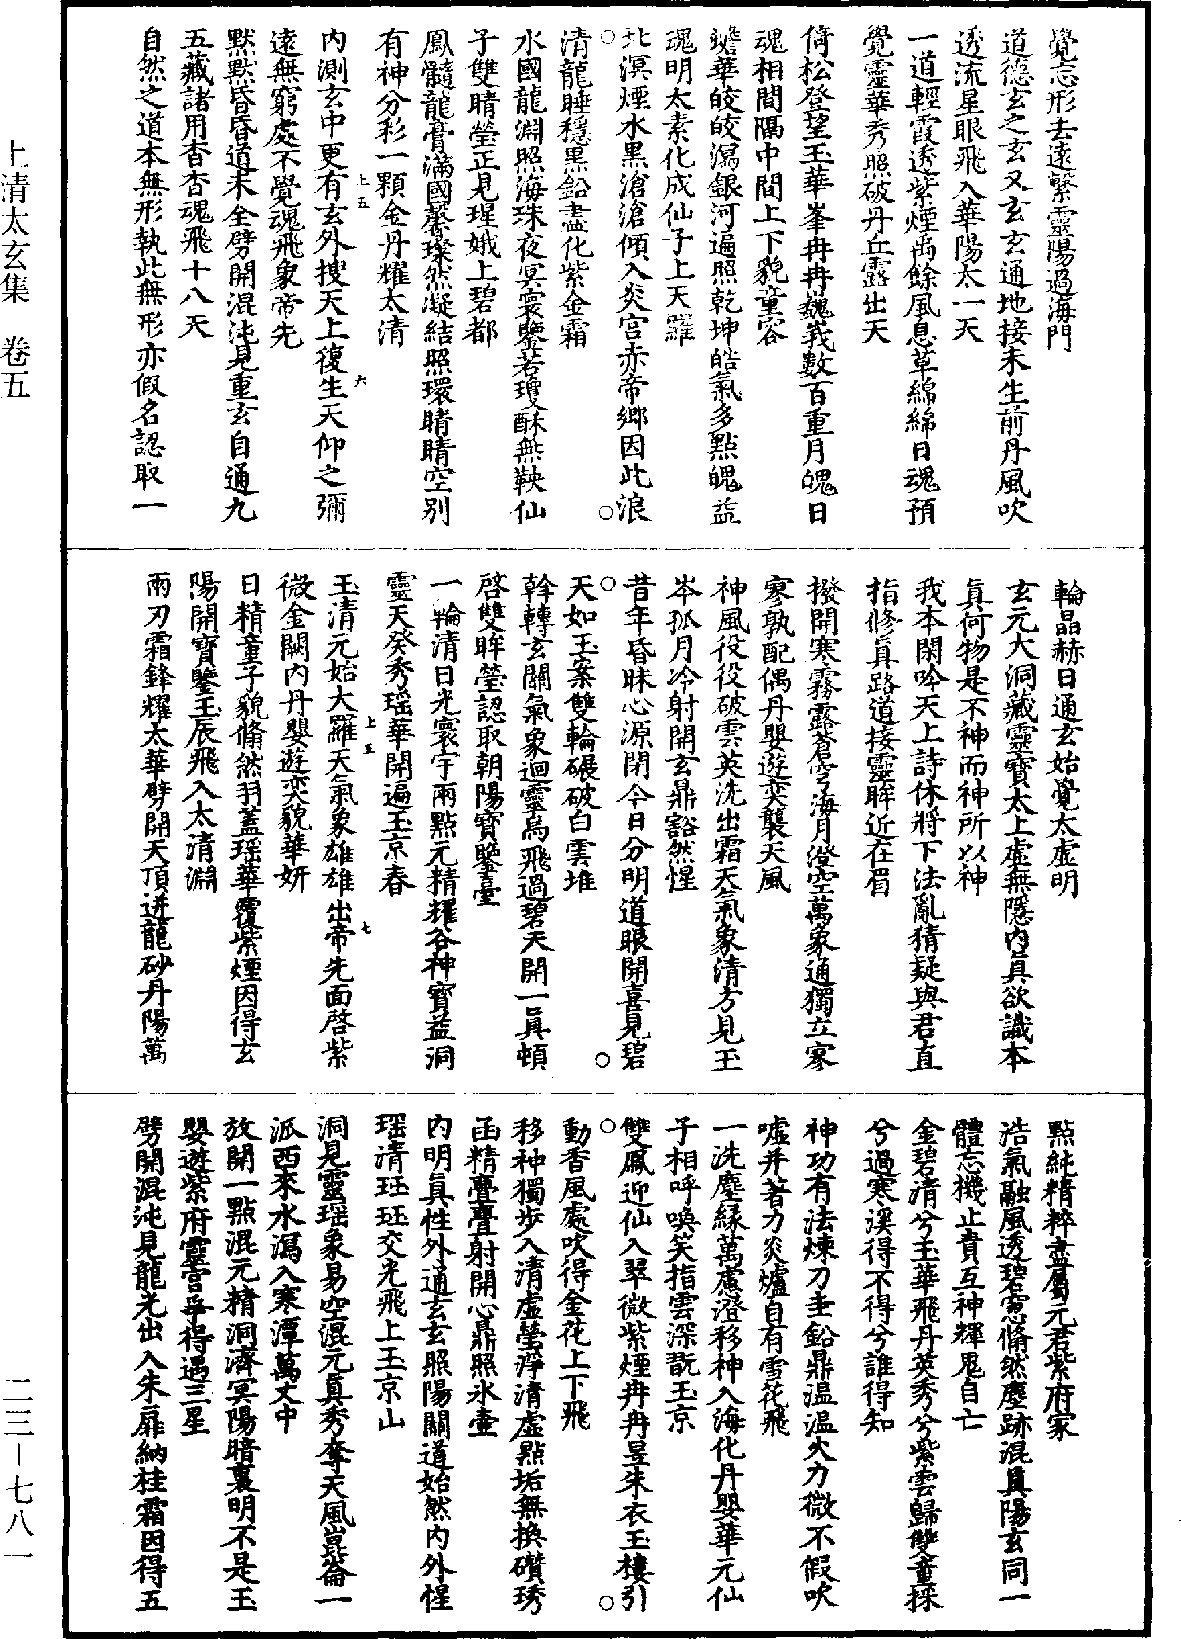 覺忘形去遠繫靈陽過海門
道德玄之玄又玄玄通地接未生前丹風吹
透流星眼飛入華陽太一天
一道輕霞透紫煙禹餘風息草綿綿日魂預
覺靈華秀照破丹丘露出天
倚松登望玉華峯冉冉巍峩數百重月魄日
魂相間隔中間上下貌童容
蟾華皎皎瀉銀河遍照乾坤皓氣多點魄益
魂明太素化成仙子上天羅
北溟煙水黑滄滄傾入炎宮赤帝鄉因此浪
清龍睡穩黑鉛盡化紫金霜
水國龍淵照海珠夜冥寰鑒若瓊酥無鞅仙
子雙睛瑩正見瑆娥上碧都
鳳髓龍膏滿國馨璨然凝結照環睛睛空別
有神分彩一顆金丹耀太清
內測玄中更有玄外搜天上復生天仰之彌
遠無窮處不覺魂飛象帝先
默默昏昏道未全劈開混沌見重玄自通九
五藏諸用杳杳魂飛十八天
自然之道本無形執此無形亦假名認取一
上五
六
輪晶赫日通玄始覺太虛明
玄元大洞藏靈寶太上虛無隱內真欲識本
真何物是不神而神所以神
我本閑吟天上詩休將下法亂猜疑與君直
指修真路道接靈眸近在眉
撥開寒霧露蒼穹海月澄空萬象通獨立寥
寥孰配偶丹嬰遊奕襲天風
神風役役破雲英洗出霜天氣象清方見玉
岑孤月冷射開玄鼎豁然惺
昔年昏昧心源閉今日分明道眼開喜見碧
天如玉案雙輪碾破白雲堆
斡轉玄關氣象迴靈烏飛過碧天開一真頓
啓雙眸瑩認取朝陽寶鑒臺
一輪清日光寰宇兩點元精耀谷神寶益洞
靈天癸秀瑶華開遍玉京春
玉清元始大羅天氣象雄雄出帝先面啓紫
微金闕內丹嬰遊奕貌華妍
日精童子貌翛然羽蓋瑶華覆紫煙因得玄
陽開寶鑒玉辰飛入太清淵
兩刃霜鋒耀太華劈開天頂迸龍砂丹陽萬
上五
七
點純精粹盡屬元君紫府家
浩氣融風透碧窓翛然塵跡混真陽玄同一
體忘機止賁互神輝鬼自亡
金碧清兮玉華飛丹英秀兮紫雲歸雙童採
兮過寒溪得不得兮誰得知
神功有法煉刀圭鉛鼎温温火力微不假吹
噓并著力炎爐自有雪花飛
一洗塵緣萬慮澄移神入海化丹嬰華元仙
子相呼喚笑指雲深翫玉京
雙鳳迎仙入翠微紫煙冉冉昱朱衣玉樓引
動香風處吹得金花上下飛
移神獨步入清虛瑩淨清虛點垢無換礸琇
函精亹亹射開心鼎照氷壷
內明真性外通玄玄照陽關道始然內外惺
瑶清珏珏交光飛上玉京山
洞見靈瑶象易空混元真秀奪天風崑崙一
派西來水瀉入寒潭萬丈中
放開一點混元精洞濟冥陽暗裏明不是玉
嬰遊紫府靈宫爭得遇三星
劈開混沌見龍光出入朱扉納桂霜因得五
上清太玄集　卷五
二三—七八一